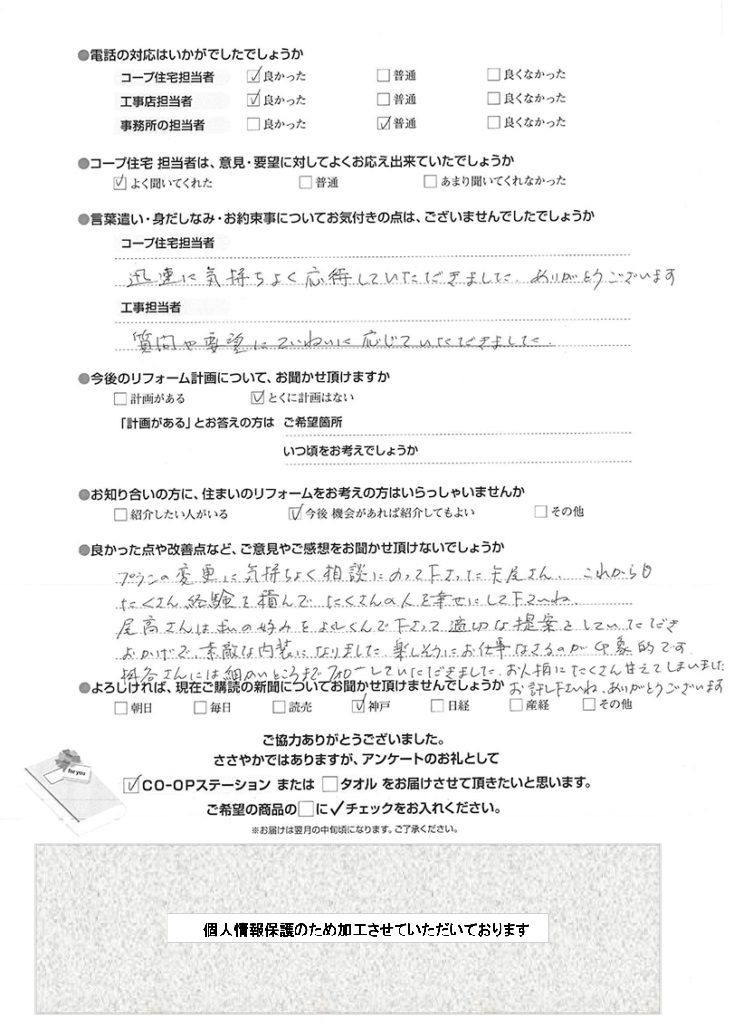 ●電話の対応はいかがでしたでしょうか
コープ住宅担当者 ☑良かった □普通 □良くなかった
工事店担当者 ☑良かった □普通 □良くなかった
事務所の担当者 □良かった ☑普通 □良くなかった
●コープ住宅 担当者は、意見・要望に対してよくお応え出来ていたでしょうか
☑よく聞いてくれた □普通 □あまり聞いてくれなかった
●言葉遣い・身だしなみ・お約束事についてお気付きの点は、ございませんでしたでしょうか
コープ住宅担当者
迅速に気持ちよく応待していただきました。ありがとうございます
工事担当者
質問や要望にていねいに応じていただきました。
●今後のリフォーム計画について、お聞かせ頂けますか
□計画がある ☑とくに計画はない
「計画がある」とお答えの方は ご希望箇所
いつ頃をお考えでしょうか
●お知り合いの方に、住まいのリフォームをお考えの方はいらっしゃいませんか
□紹介したい人がいる ☑今後 機会があれば紹介してもよい □その他
●良かった点や改善点など、ご意見やご感想をお聞かせ頂けないでしょうか
プランの変更に気持ちよく相談にのって下さった矢尾さん、これからも
たくさん経験を積んでたくさんの人を幸せにして下さいね。
尾高さんは私の好みをよくくんで下さって適切な提案をしていただき
おかげで素敵な内装になりました 楽しそうにお仕事なさるのが印象的です
さんには細かいところまでフォローしていただきました。お人柄にたくさん甘えてしまいました
お許し下さいね。ありがとうございます
●よろしければ、現在ご購読の新聞についてお聞かせ頂けませんでしょうか
□朝日 □毎日 □読売 ☑神戸 □日経 □産経 □その他
ご協力ありがとうございました。
ささやかではありますが、アンケートのお礼として
☑CO-OPステーション または □タオル をお届けさせて頂きたいと思います。
ご希望の商品の□に✓チェックをお入れください。
※お届けは翌月の中旬頃になります。ご了承ください。
for you
個人情報保護のため加工させていただいております